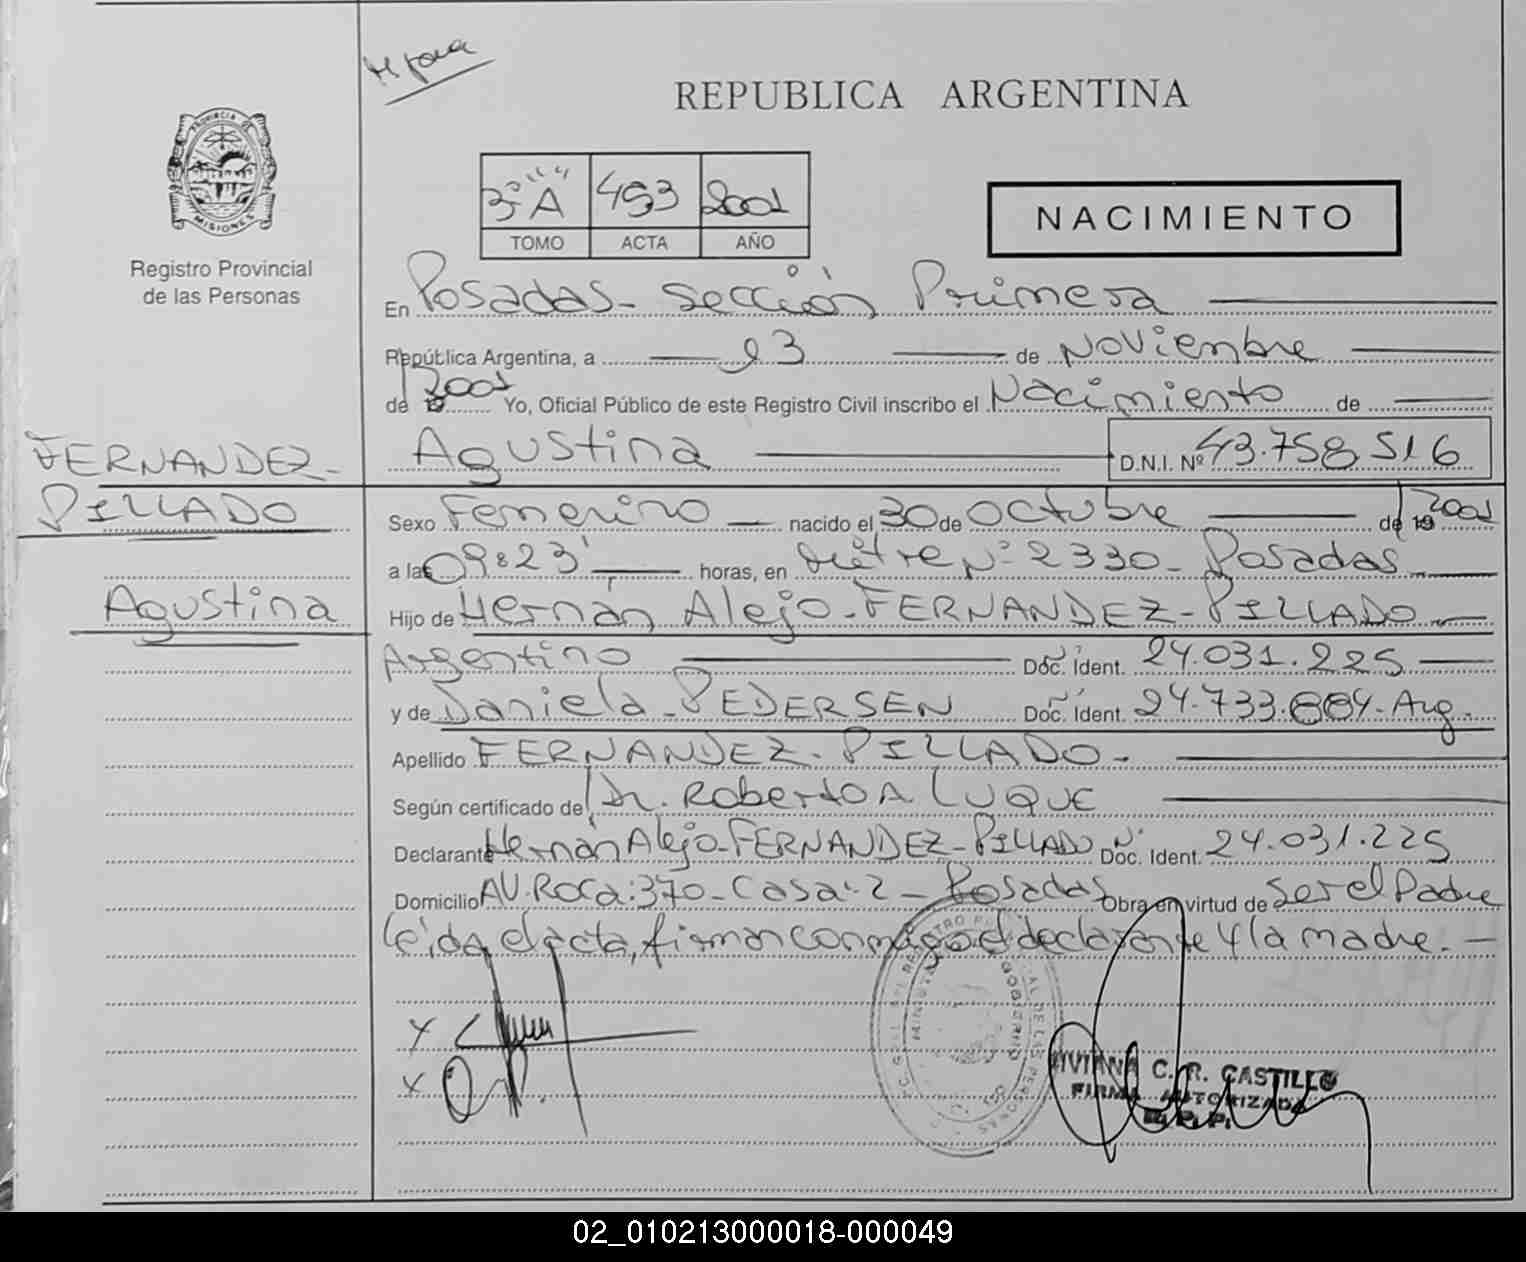 REPUBLICA ARGENTINA
PROVINCIA DE
MISIONES
Registro Provincial
de las Personas
3º "A" 493 2001
TOMO ACTA AÑO
NACIMIENTO
En Posadas - sección Primera
República Argentina, a 13 de Noviembre
de 19 2001 Yo, Oficial Público de este Registro Civil inscribo el Nacimiento de
Agustina D.N.I. Nº 43.758 516
FERNANDEZ-
PILLADO
Agustina
Sexo Femenino nacido el 30 de Octubre de 19 2001
a las 09:23' horas, en Nº 2330 - Posadas
Hijo de Hernán Alejo - FERNANDEZ - PILLADO
Argentino Doc. Ident. 24.031.225
y de Daniela - PEDERSEN Doc. Ident. 24.733.884 - Arg.
Apellido FERNANDEZ - PILLADO -
Según certificado de Dr. Roberto A. LUQUE
Declarante Hernán Alejo - FERNANDEZ - PILLADO Doc. Ident. Nº 24.031.225
Domicilio AV. Roca: 370 - Casa: 2 - Posadas Obra en virtud de ser el Padre
leída el acta, firman conmigo el declarante y la madre. -
VIVIANA C. R. CASTILLO
FIRMA AUTORIZADA
R.P.P.
02_010213000018-000049